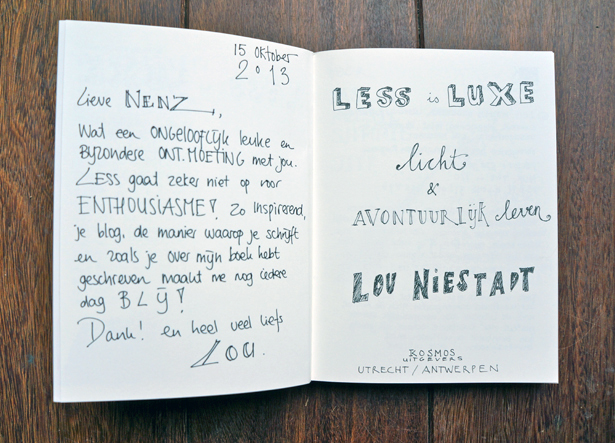 15 oktober
2013
Lieve NENZ,
Wat een ONGELOOFLIJK leuke en
BIJZONDERE ONT.MOETING met jou.
LESS gaat zeker niet op voor
ENTHOUSIASME! Zo inspirerend,
je blog, de manier waarop je schrijft
en zoals je over mijn boek hebt
geschreven maakt me nog iedere
dag BLIJ!
Dank! en heel veel liefs
LOU.
LESS is LUXE
licht
&
AVONTUURLIJK leven
LOU NIESTADT
KOSMOS
UITGEVERS
UTRECHT / ANTWERPEN